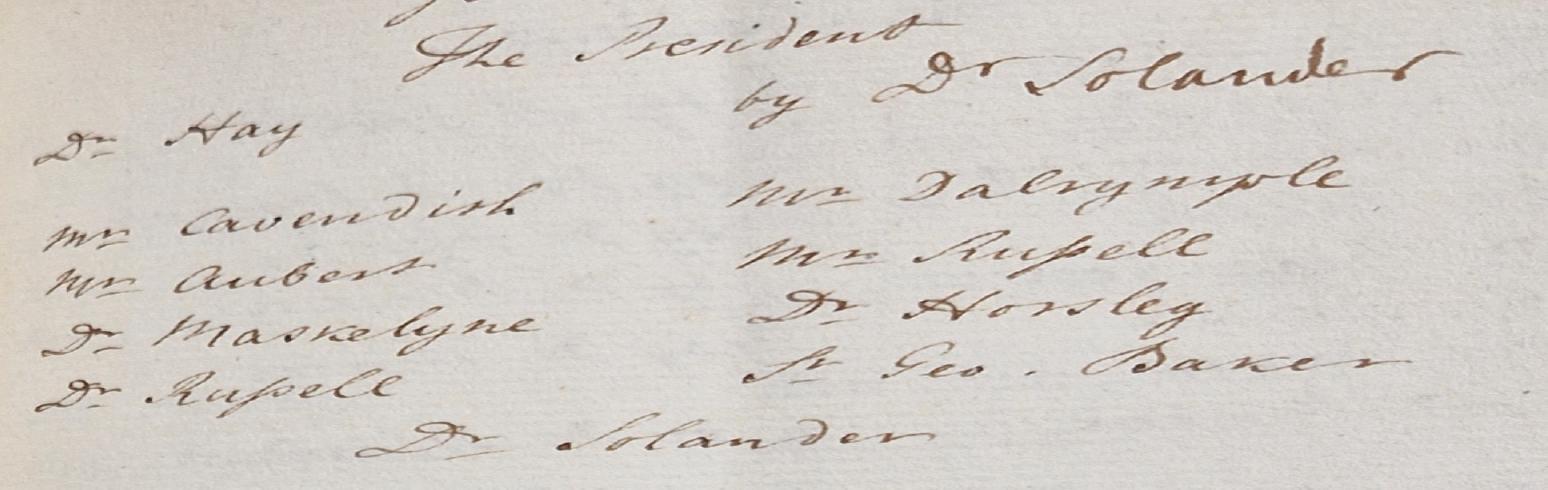 The President
by Dr Solander
Dr Hay
Mr Cavendish
Mr Dalrymple
Mr Aubert
Mr Rußell
Dr Maskelyne
Dr Horsley
Dr Rußell
Sr Geo. Baker
Dr Solander